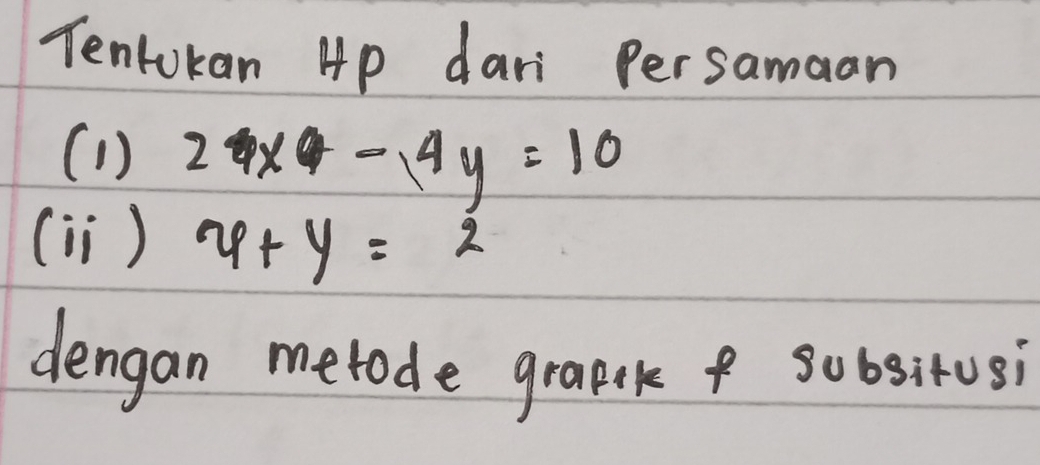 Tentukan Hp dari Persamaan
(1) 2x - 4y = 10
(ii) x + y = 2
dengan metode grafik & subsitusi